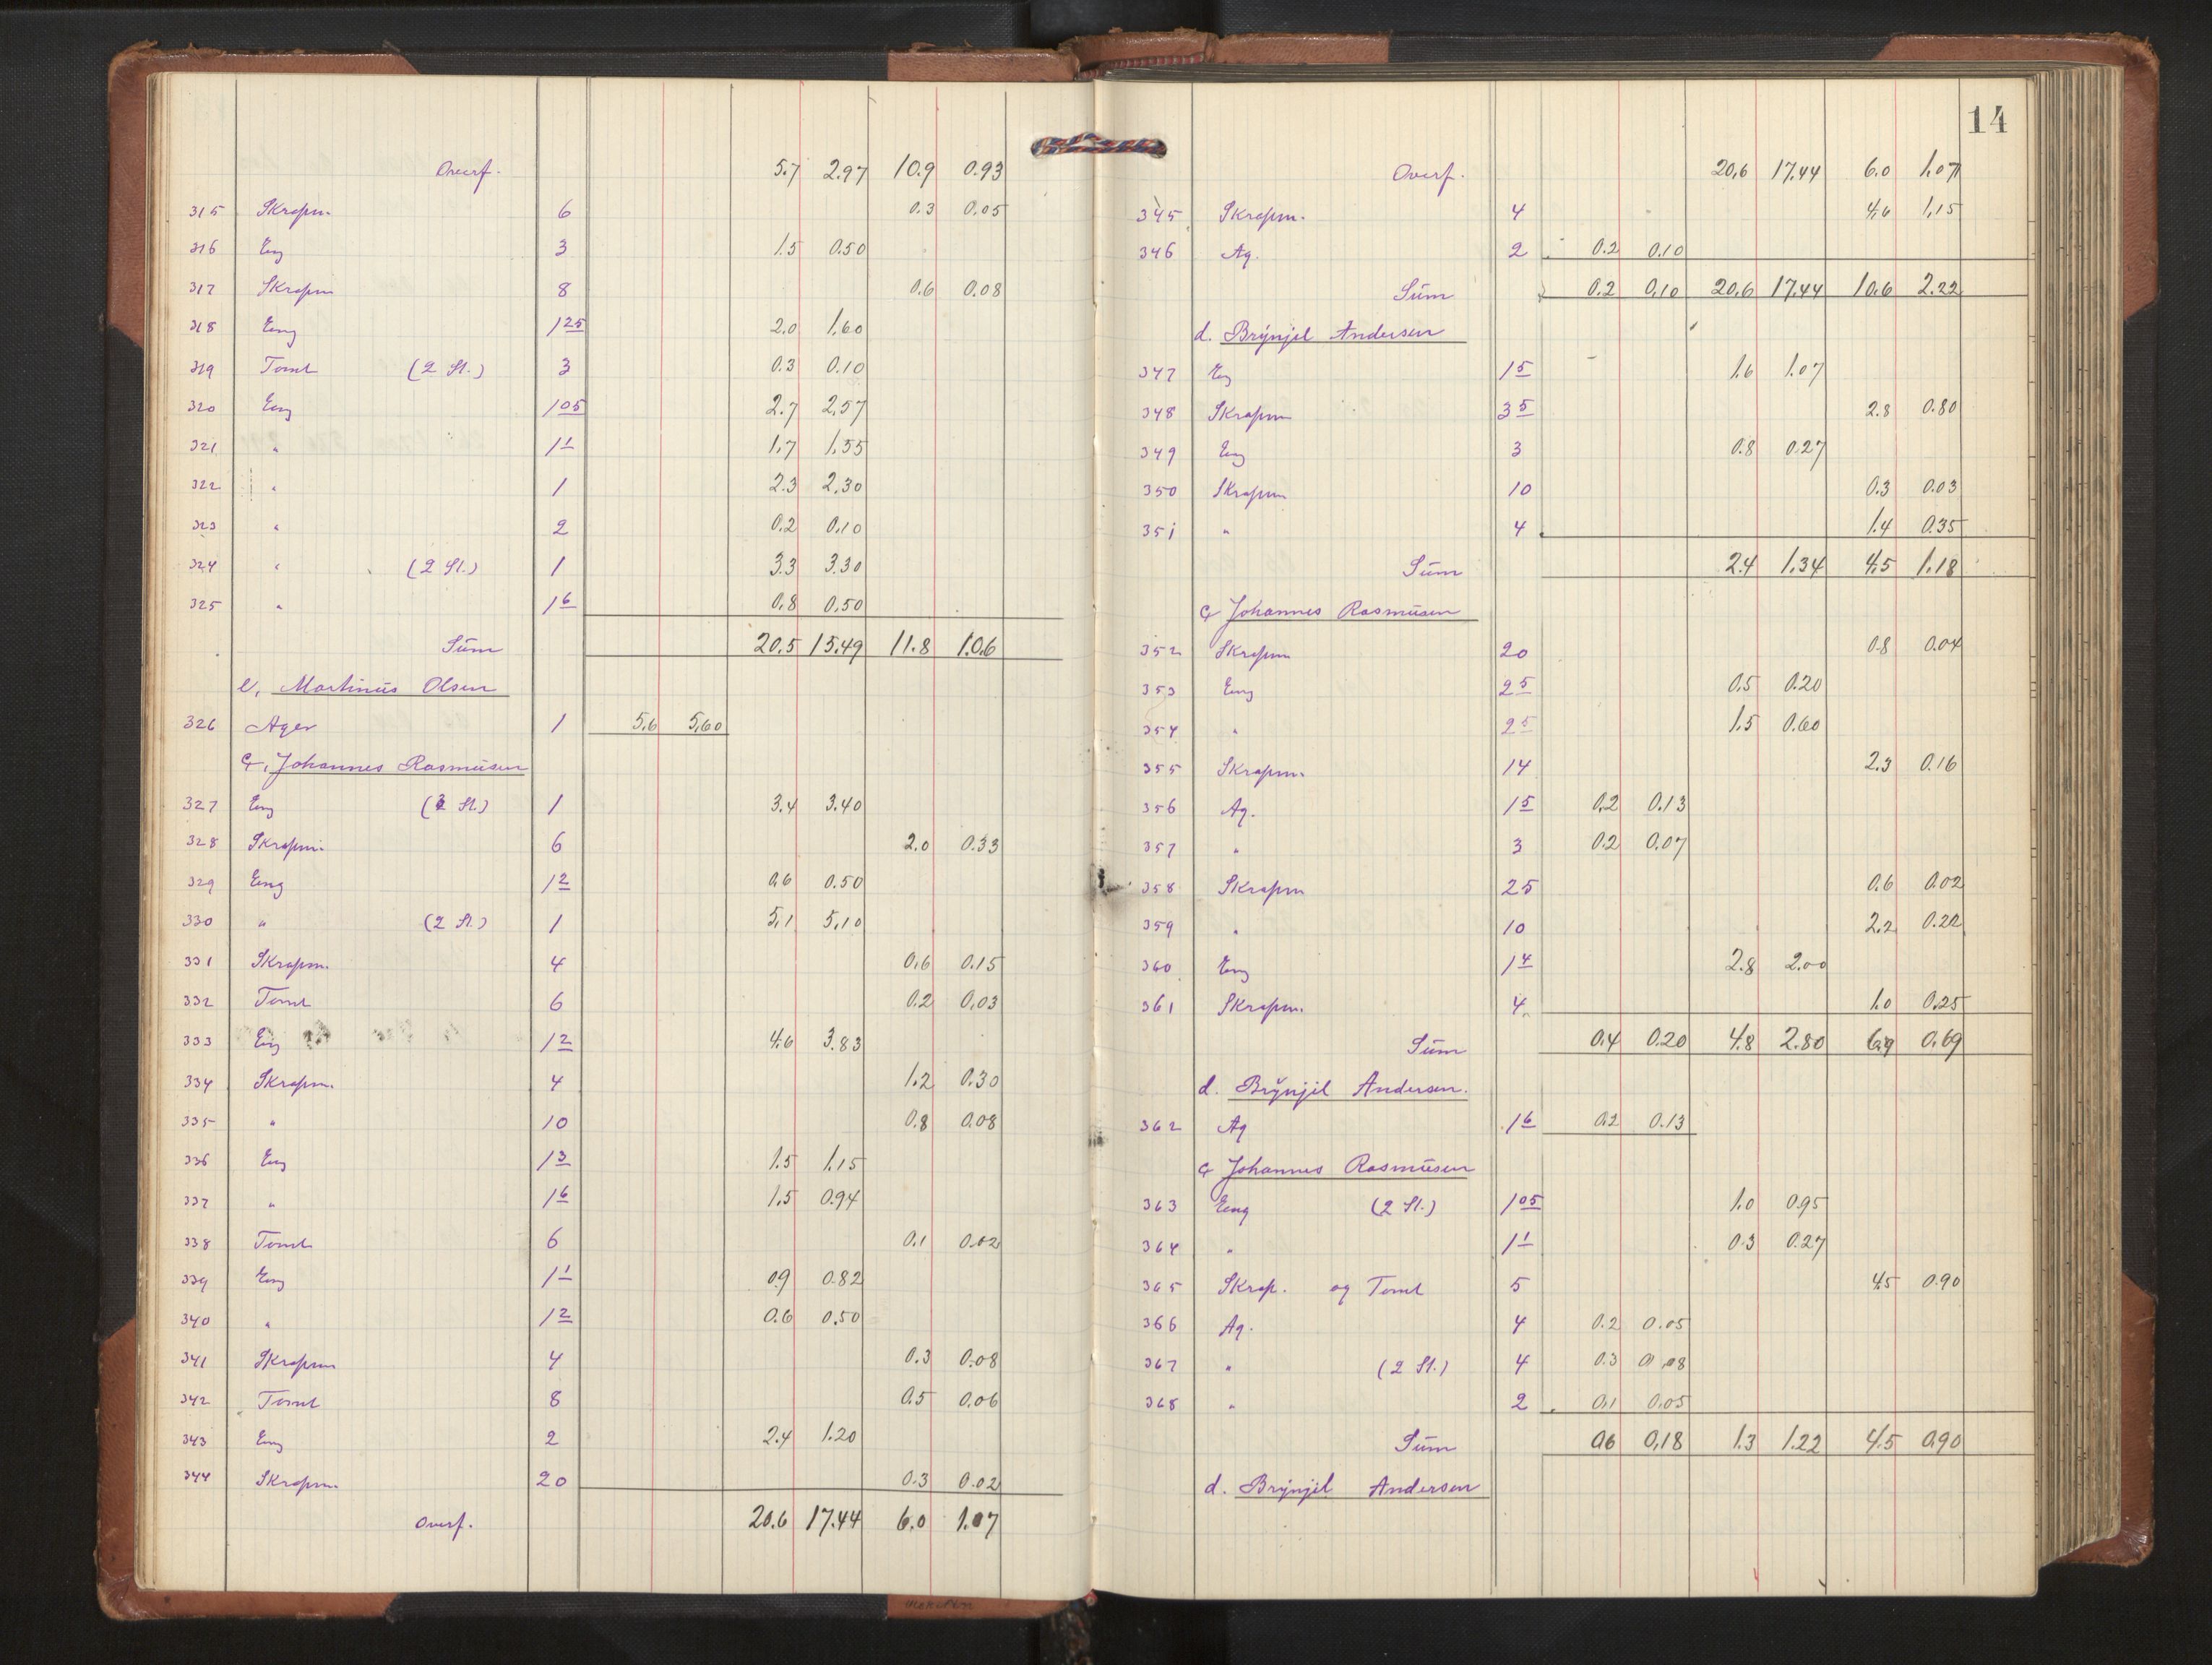 Overf. 5.7 2.97 10.9 0.93
315 Skrapm. 6 0.3 0.05
316 Eng 3 1.5 0.50
317 Skrapm 8 0.6 0.08
318 Eng 1 25 2.0 1.60
319 Tomt (2 St.) 3 0.3 0.10
320 Eng 1 05 2.7 2.57
321 " 1 1 1.7 1.55
322 " 1 2.3 2.30
323 " 2 0.2 0.10
324 " (2 St.) 1 3.3 3.30
325 " 1 6 0.8 0.50
Sum 20.5 15.49 11.8 1.06
e, Martinus Olsen
326 Ager 1 5.6 5.60
c, Johannes Rasmusen
327 Eng (3 St.) 1 3.4 3.40
328 Skrapm. 6 2.0 0.33
329 Eng 1 2 0.6 0.50
330 " (2 St.) 1 5.1 5.10
331 Skrapm. 4 0.6 0.15
332 Tomt 6 0.2 0.03
333 Eng 1 2 4.6 3.83
334 Skrapm. 4 1.2 0.30
335 " 10 0.8 0.08
336 Eng 1 3 1.5 1.15
337 " 1 6 1.5 0.94
338 Tomt 6 0.1 0.02
339 Eng 1 1 0.9 0.82
340 " 1 2 0.6 0.50
341 Skrapm 4 0.3 0.08
342 Tomt 8 0.5 0.06
343 Eng 2 2.4 1.20
344 Skrapm. 20 0.3 0.02
Overf. 20.6 17.44 6.0 1.07
14
Overf. 20.6 17.44 6.0 1.07
345 Skrapm. 4 4.6 1.15
346 Ag. 2 0.2 0.10
Sum 0.2 0.10 20.6 17.44 10.6 2.22
d. Brynjel Andersen
347 Eng 1 5 1.6 1.07
348 Skrapm 3 5 2.8 0.80
349 Eng 3 0.8 0.27
350 Skrapm 10 0.3 0.03
351 " 4 1.4 0.35
Sum 2.4 1.34 4.5 1.18
c Johannes Rasmusen
352 Skrapm 20 0.8 0.04
353 Eng 2 5 0.5 0.20
354 " 2 5 1.5 0.60
355 Skrapm. 14 2.3 0.16
356 Ag. 1 5 0.2 0.13
357 " 3 0.2 0.07
358 Skrapm 25 0.6 0.02
359 " 10 2.2 0.22
360 Eng 1 4 2.8 2.00
361 Skrapm. 4 1.0 0.25
Sum 0.4 0.20 4.8 2.80 6.9 0.69
d. Brynjel Andersen.
362 Ag 1 6 0.2 0.13
c Johannes Rasmusen
363 Eng (2 St.) 1 05 1.0 0.95
364 " 1 1 0.3 0.27
365 Skrap. og Tomt 5 4.5 0.90
366 Ag. 4 0.2 0.05
367 " (2 St.) 4 0.3 0.08
368 " 2 0.1 0.05
Sum 0.6 0.18 1.3 1.22 4.5 0.90
d. Brynjel Andersen